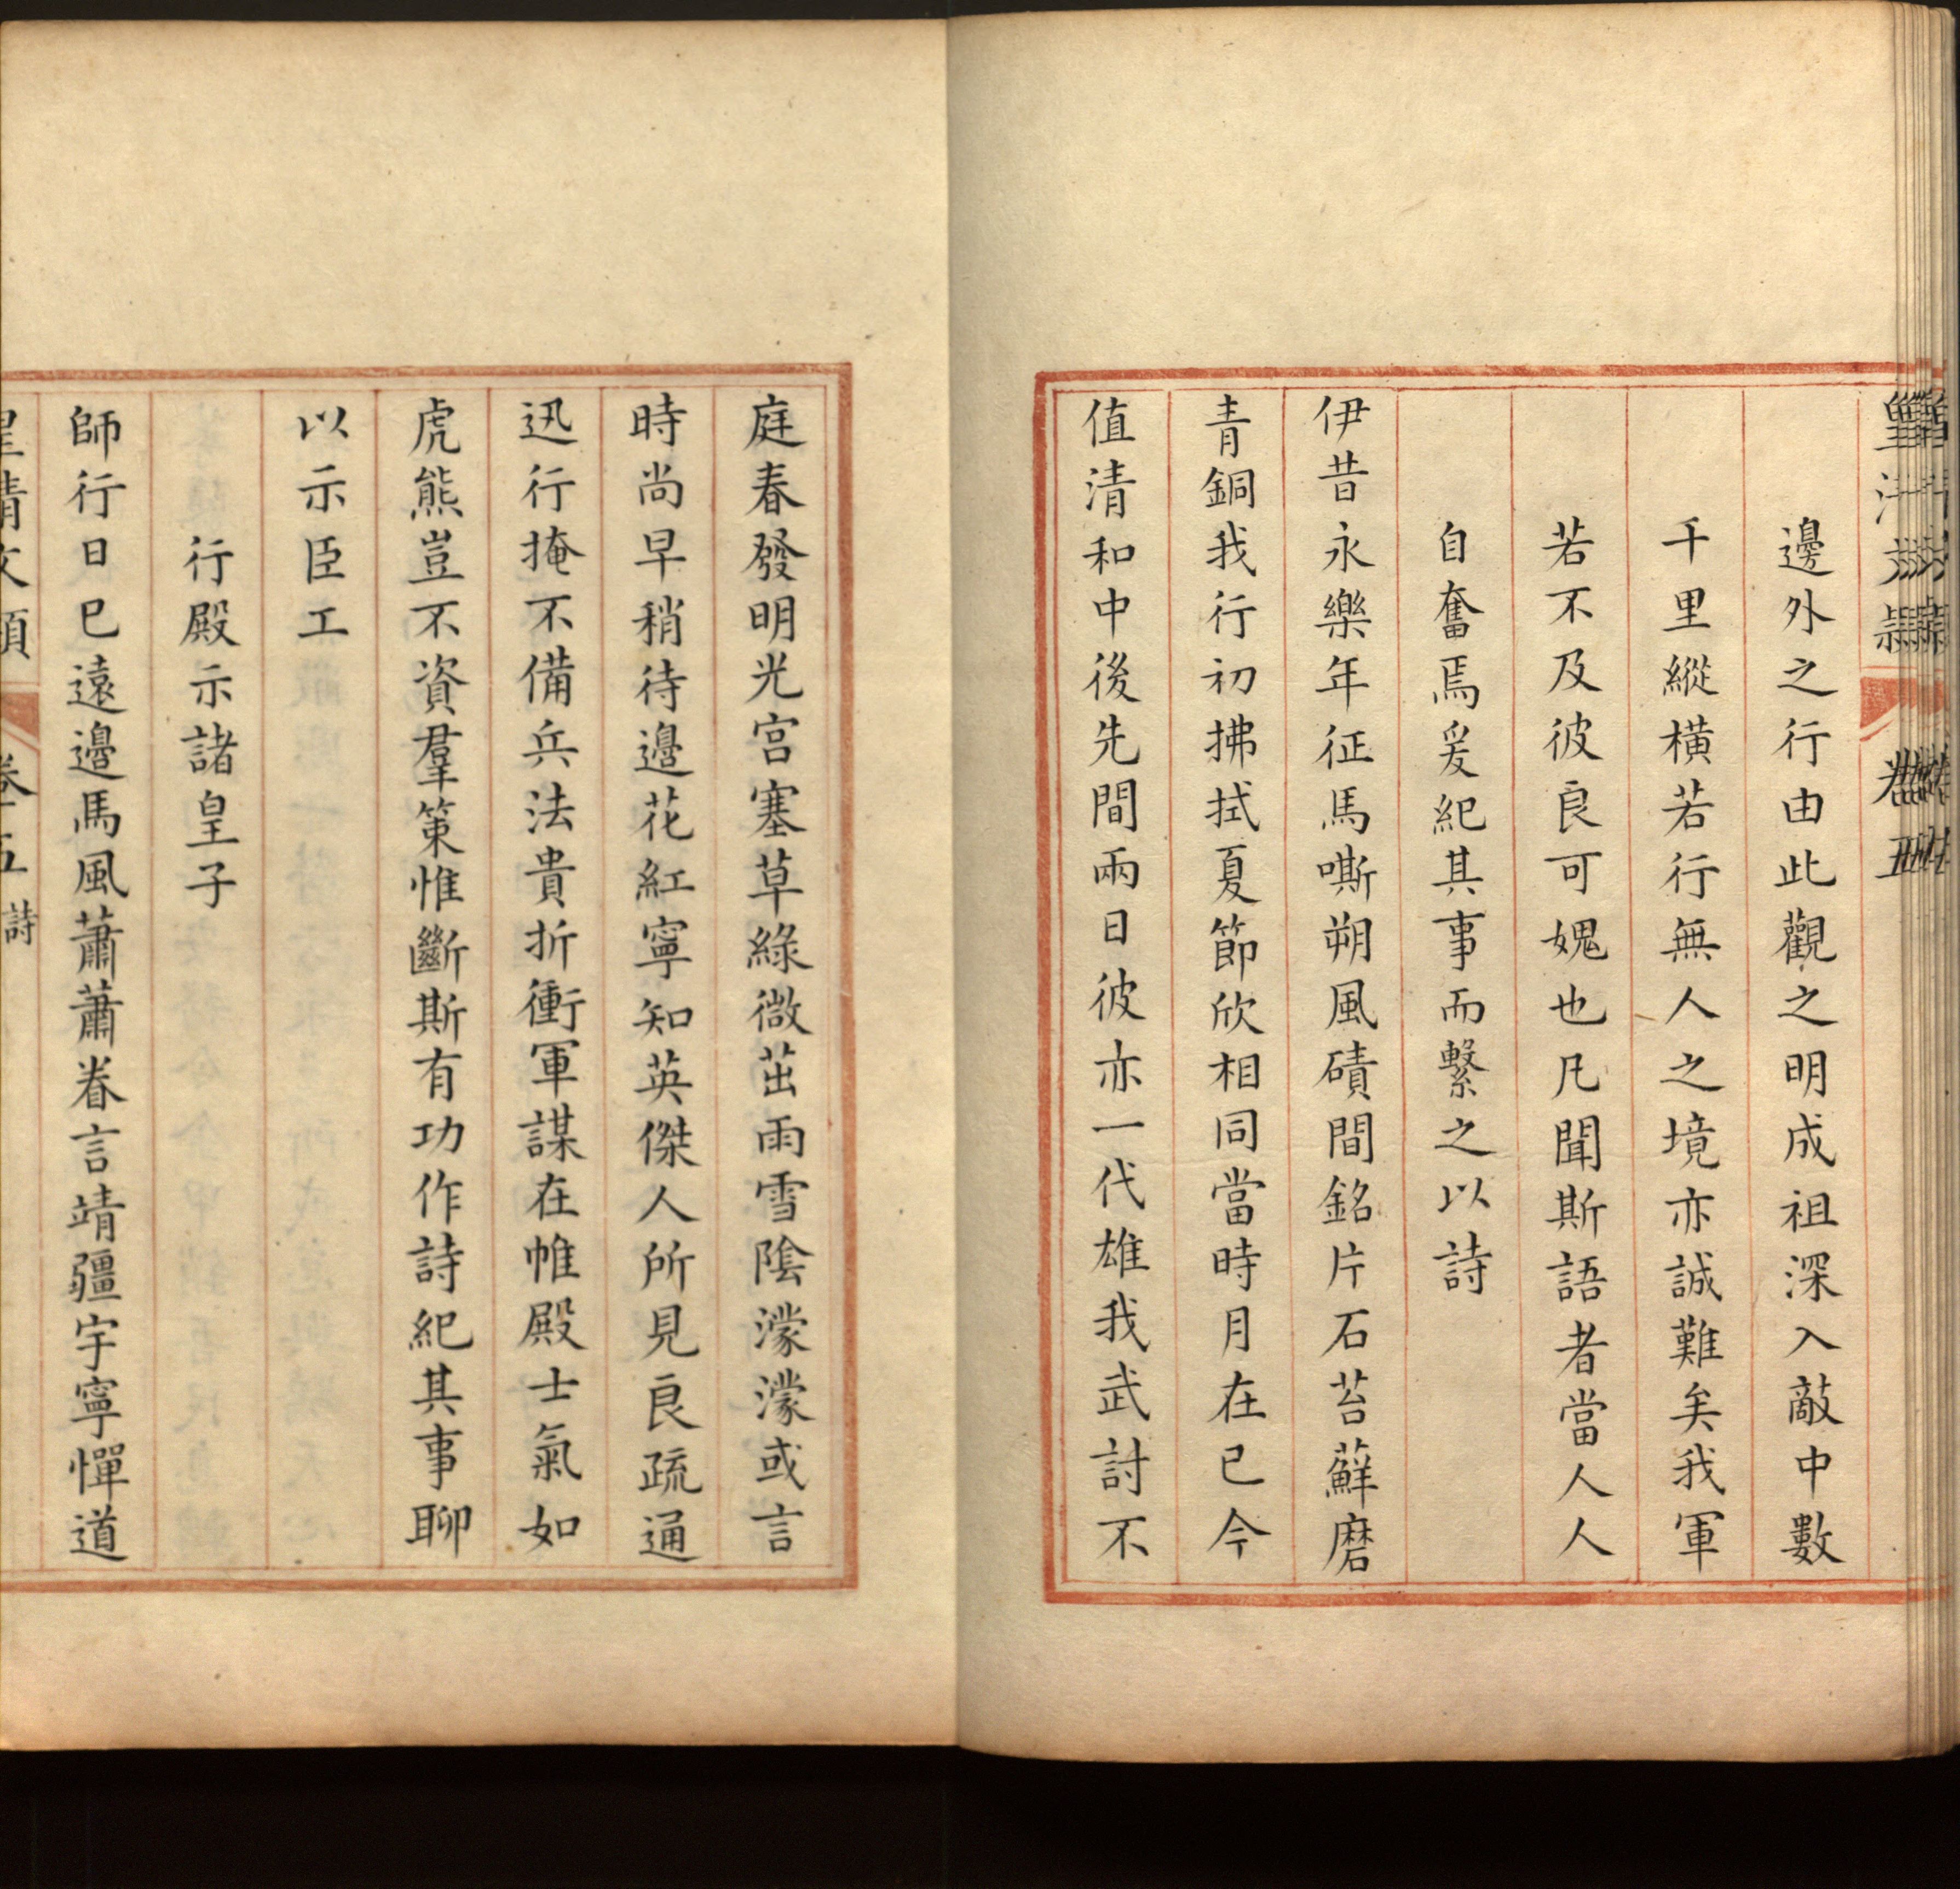 皇清文穎 卷五
邊外之行由此觀之明成祖深入敵中數
千里縱橫若行無人之境亦誠難矣我軍
若不及彼良可媿也凡聞斯語者當人人
自奮焉爰紀其事而繫之以詩
伊昔永樂年征馬嘶朔風磧間銘片石苔蘚磨
青銅我行初拂拭夏節欣相同當時月在巳今
值清和中後先間兩日彼亦一代雄我武討不
庭春發明光宮塞草綠微茁雨雪陰濛濛或言
時尚早稍待邊花紅寧知英傑人所見良疏通
迅行掩不備兵法貴折衝軍謀在帷殿士氣如
虎熊豈不資羣策惟斷斯有功作詩紀其事聊
以示臣工
行殿示諸皇子
師行日巳遠邊馬風蕭蕭眷言靖疆宇寧憚道
皇清文穎 卷五 詩